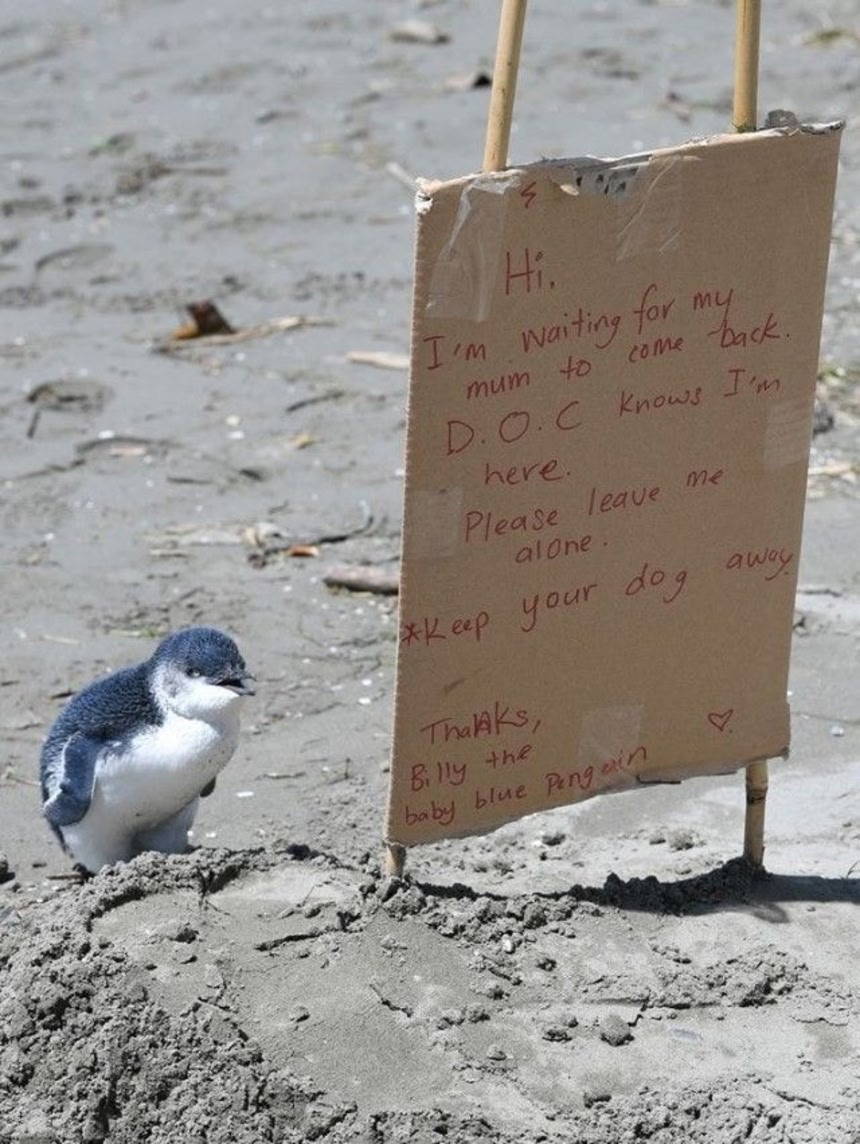 Hi.
I'm waiting for my
mum to come back.
D.O.C knows I'm
here.
Please leave me
alone.
*Keep your dog away.
Thanks,
Billy the ♡
baby blue Penguin